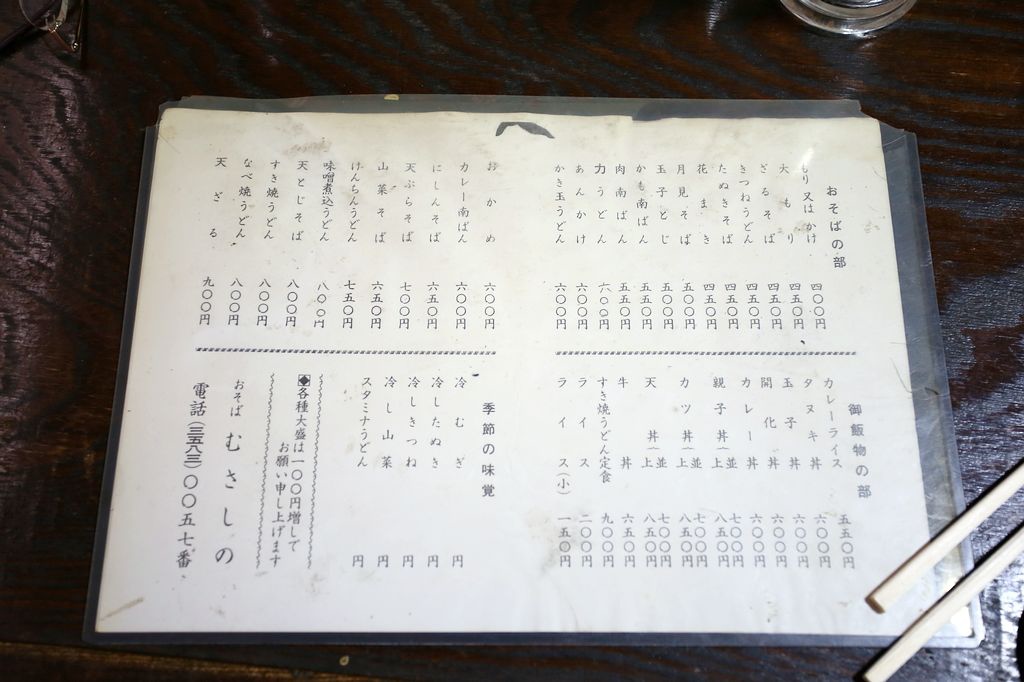 おそばの部
もり又はかけ 四〇〇円
大もり 四五〇円
ざるそば 四五〇円
きつねうどん 四五〇円
たぬきそば 四五〇円
花まき 四五〇円
月見そば 五〇〇円
玉子とじ 五五〇円
かも南ばん 五五〇円
肉南ばん 五五〇円
力うどん 六〇〇円
あんかけ 六〇〇円
かき玉うどん 六〇〇円
おかめ 六〇〇円
カレー南ばん 六〇〇円
にしんそば 六五〇円
天ぷらそば 七〇〇円
山菜そば 六五〇円
けんちんうどん 七五〇円
味噌煮込うどん 八〇〇円
天とじそば 八〇〇円
すき焼うどん 八〇〇円
なべ焼うどん 八〇〇円
天ざる 九〇〇円
御飯物の部
カレーライス 五五〇円
タヌキ丼 六〇〇円
玉子丼 六〇〇円
開化丼 六〇〇円
カレー丼 六〇〇円
親子丼(並 七〇〇円
上 八五〇円
カツ丼(並 七〇〇円
上 八五〇円
天丼(並 七〇〇円
上 八五〇円
牛丼 六五〇円
すき焼うどん定食 九〇〇円
ライス 二〇〇円
ライス(小) 一五〇円
季節の味覚
冷むぎ 円
冷したぬき 円
冷しきつね 円
冷し山菜 円
スタミナうどん 円
◆各種大盛は一〇〇円増しで
お願い申し上げます
おそば むさしの
電話(三五八三)〇〇五七番